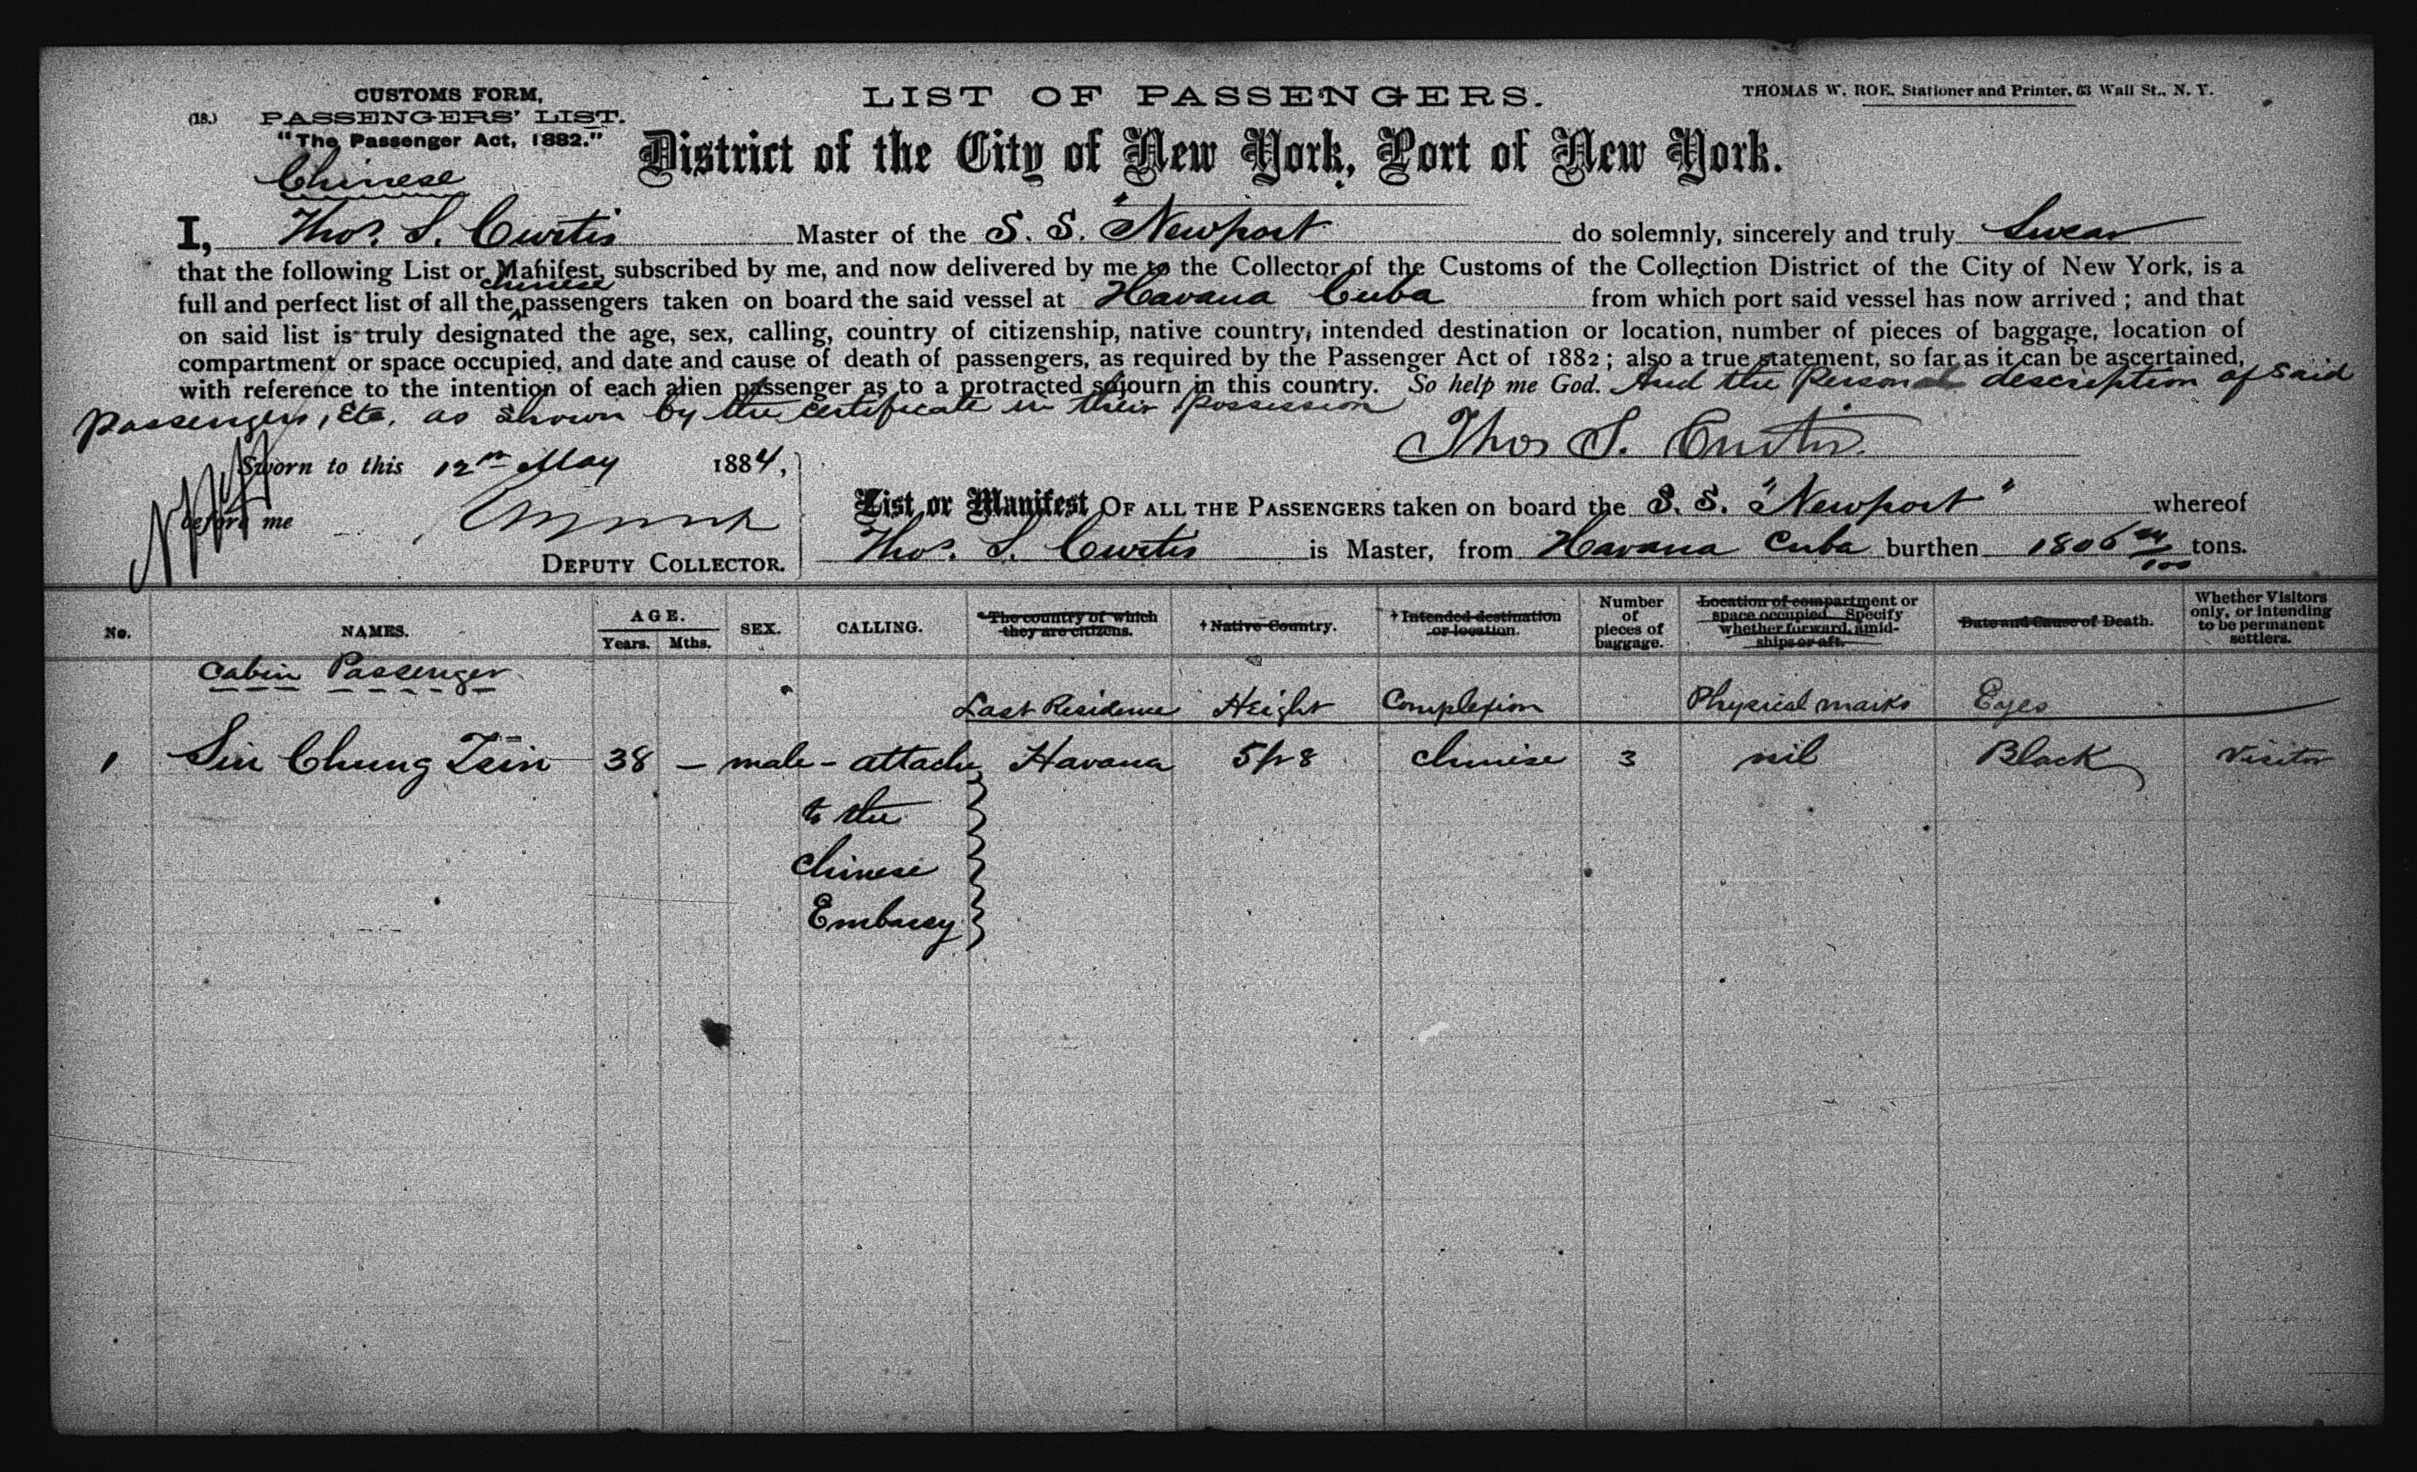 CUSTOMS FORM,
(18.) PASSENGERS' LIST.
"The Passenger Act, 1882."
Chinese
LIST OF PASSENGERS.
THOMAS W. ROE, Stationer and Printer, 63 Wall St., N. Y.
District of the City of New York, Port of New York.
I, Thos. S. Curtis Master of the S. S. "Newport do solemnly, sincerely and truly Swear
that the following List or Manifest, subscribed by me, and now delivered by me to the Collector of the Customs of the Collection District of the City of New York, is a
full and perfect list of all the Chinese passengers taken on board the said vessel at Havana Cuba from which port said vessel has now arrived; and that
on said list is truly designated the age, sex, calling, country of citizenship, native country, intended destination or location, number of pieces of baggage, location of
compartment or space occupied, and date and cause of death of passengers, as required by the Passenger Act of 1882; also a true statement, so far as it can be ascertained,
with reference to the intention of each alien passenger as to a protracted sojourn in this country. So help me God. And the Personal description of said
Passengers, Etc. as shown by the certificate in their possession
Thos S. Curtis
Sworn to this 12th May 1884,
before me
DEPUTY COLLECTOR.
List or Manifest OF ALL THE PASSENGERS taken on board the S. S. "Newport" whereof
Thos. S. Curtis is Master, from Havana Cuba burthen 1806 tons.
No. NAMES. AGE. Years. Mths. SEX. CALLING. *The country of which they are citizens. †Native Country. †Intended destination or location. Number of pieces of baggage. Location of compartment or space occupied. Specify whether forward, amidships or aft. Date and Cause of Death. Whether Visitors only, or intending to be permanent settlers.
Cabin Passenger
Last Residence Height Complexion Physical marks Eyes
1 Sin Chung Tsin 38 — male - attache Havana 5 ft 8 chinese 3 nil Black Visitor
to the
Chinese
Embassy